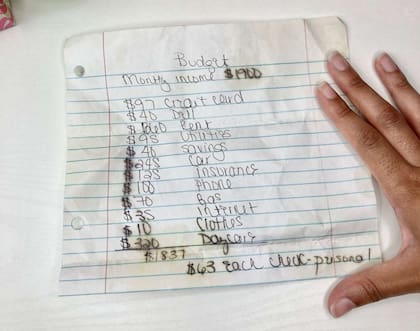 Budget
Montly income $1900
$97 credit card
$40 Dell
$660 Rent
$95 Utilities
$40 savings
$245 Car
$125 Insurance
$100 Phone
$70 Gas
$35 Internet
$10 Clothes
$320 Daycare
$1837
$63 each check-personal